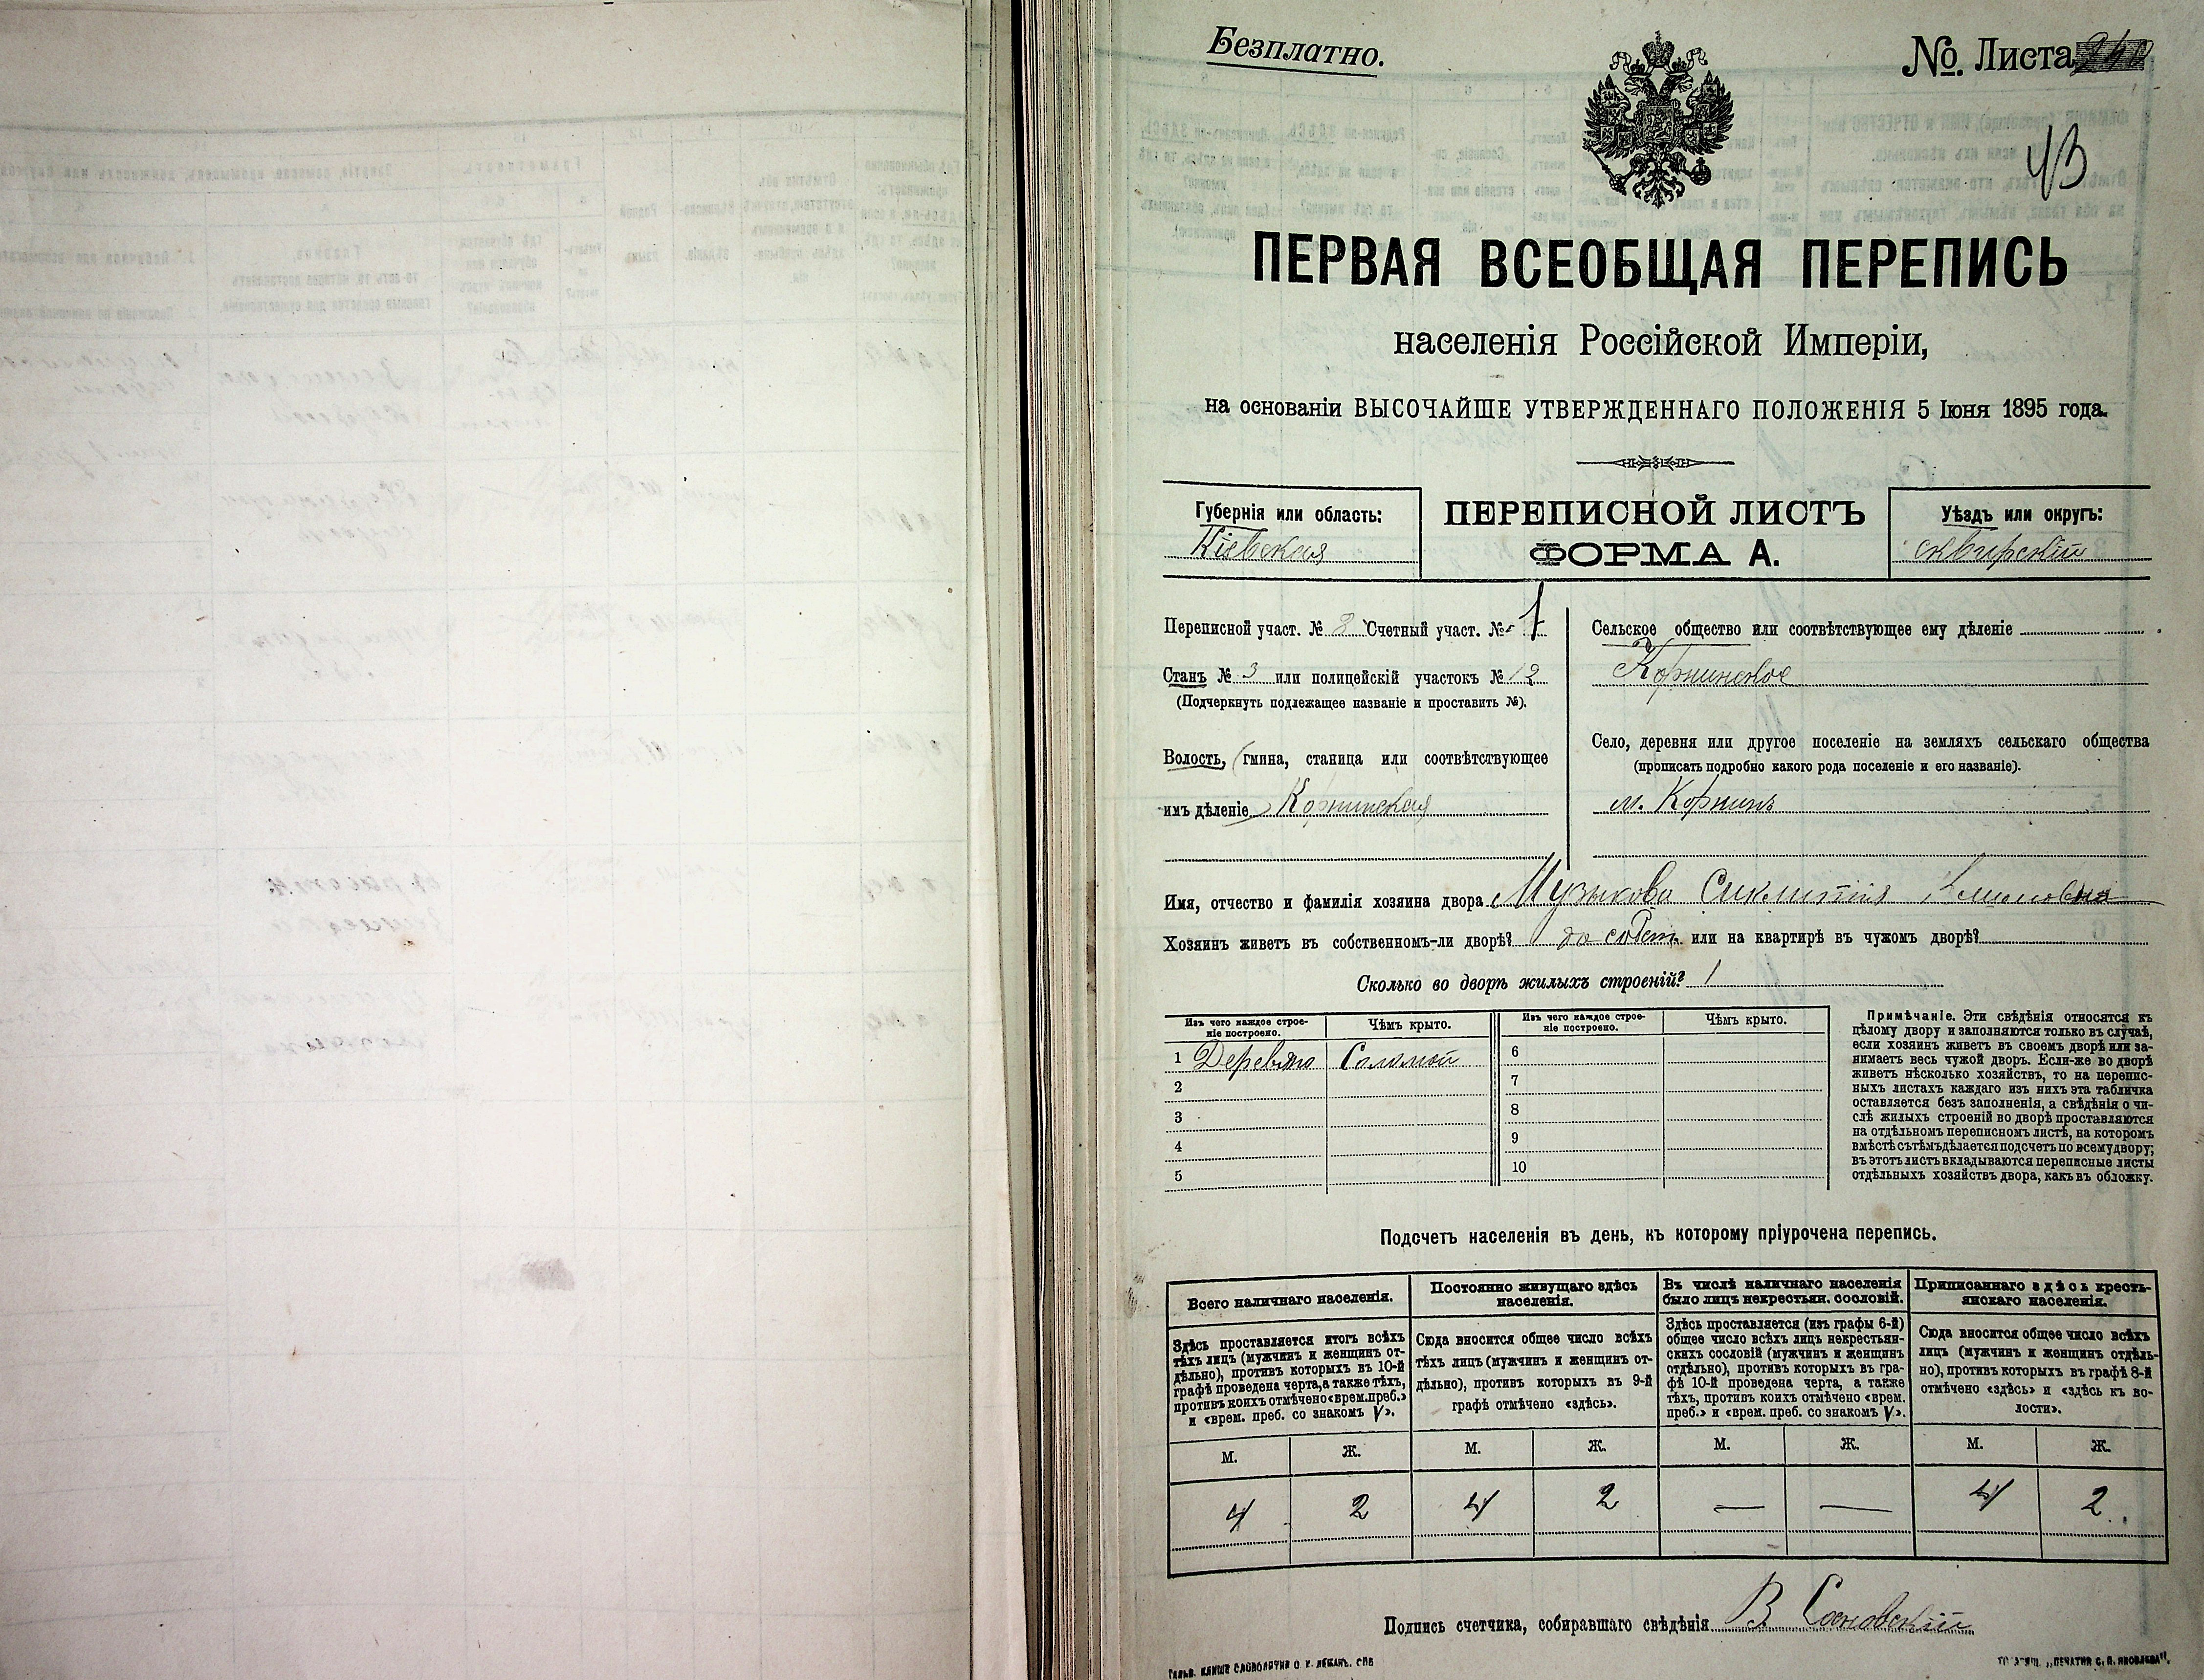 Безплатно.
№. Листа
43
ПЕРВАЯ ВСЕОБЩАЯ ПЕРЕПИСЬ
населенія Россійской Имперіи,
на основаніи ВЫСОЧАЙШЕ УТВЕРЖДЕННАГО ПОЛОЖЕНІЯ 5 Іюня 1895 года.
Губернія или область:
Кіевская
ПЕРЕПИСНОЙ ЛИСТЪ
ФОРМА А.
Уѣздъ или округъ:
сквирскій
Переписной участ. № 2 Счетный участ. № 1
Станъ № 3 или полицейскій участокъ № 12
(Подчеркнуть подлежащее названіе и проставить №).
Волость, (гмина, станица или соотвѣтствующее
имъ дѣленіе) Корнинская
Сельское общество или соотвѣтствующее ему дѣленіе
Корнинское
Село, деревня или другое поселеніе на земляхъ сельскаго общества
(прописать подробно какого рода поселеніе и его названіе).
м. Корнинъ
Имя, отчество и фамилія хозяина двора Музыкова
Хозяинъ живетъ въ собственномъ-ли дворѣ? или на квартирѣ въ чужомъ дворѣ?
Сколько во дворѣ жилыхъ строеній? 1
Изъ чего каждое строе-
ніе построено.
Чѣмъ крыто.
Изъ чего каждое строе-
ніе построено.
Чѣмъ крыто.
1 Деревяно Соломой 6
2 7
3 8
4 9
5 10
Примѣчаніе. Эти свѣдѣнія относятся къ
цѣлому двору и заполняются только въ случаѣ,
если хозяинъ живетъ въ своемъ дворѣ или за-
нимаетъ весь чужой дворъ. Если-же во дворѣ
живетъ нѣсколько хозяйствъ, то на перепис-
ныхъ листахъ каждаго изъ нихъ эта табличка
оставляется безъ заполненія, а свѣдѣнія о чи-
слѣ жилыхъ строеній во дворѣ проставляются
на отдѣльномъ переписномъ листѣ, на которомъ
вмѣстѣ съ тѣмъ дѣлается подсчетъ по всему двору;
въ этотъ листъ вкладываются переписные листы
отдѣльныхъ хозяйствъ двора, какъ въ обложку.
Подсчетъ населенія въ день, къ которому пріурочена перепись.
Всего наличнаго населенія.
Постоянно живущаго здѣсь
населенія.
Въ числѣ наличнаго населенія
было лицъ некрестьян. сословій.
Приписаннаго здѣсь кресть-
янскаго населенія.
Здѣсь проставляется итогъ всѣхъ
тѣхъ лицъ (мужчинъ и женщинъ от-
дѣльно), противъ которыхъ въ 10-й
графѣ проведена черта, а также тѣхъ,
противъ коихъ отмѣчено «врем. преб.»
и «врем. преб. со знакомъ V».
Сюда вносится общее число всѣхъ
тѣхъ лицъ (мужчинъ и женщинъ от-
дѣльно), противъ которыхъ въ 9-й
графѣ отмѣчено «здѣсь».
Здѣсь проставляется (изъ графы 6-й)
общее число всѣхъ лицъ некрестьян-
скихъ сословій (мужчинъ и женщинъ
отдѣльно), противъ которыхъ въ гра-
фѣ 10-й проведена черта, а также
тѣхъ, противъ коихъ отмѣчено «врем.
преб.» и «врем. преб. со знакомъ V».
Сюда вносится общее число всѣхъ
лицъ (мужчинъ и женщинъ отдѣль-
но), противъ которыхъ въ графѣ 8-й
отмѣчено «здѣсь» и «здѣсь къ во-
лости».
М. Ж. М. Ж. М. Ж. М. Ж.
4 2 4 2 — — 4 2
Подпись счетчика, собиравшаго свѣдѣнія В Сосновскій